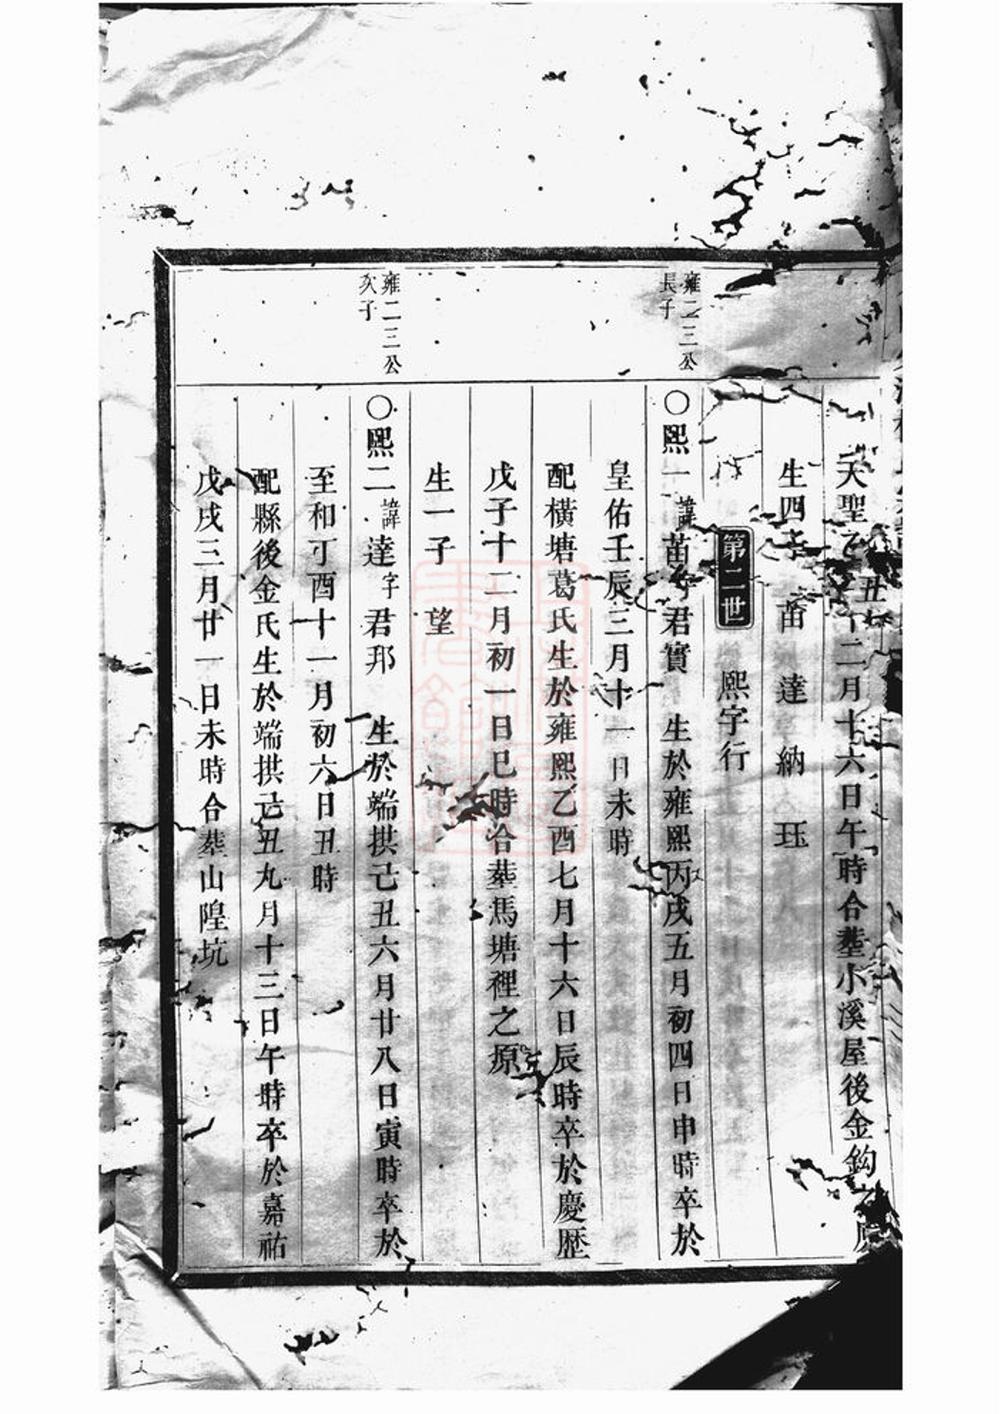 天聖乙丑十二月十六日午時合塟小溪屋後金鈎之原
生四子 苗 達 納 珏
第二世 熙字行
雍二三公
長子
〇熙一諱苗字君實 生於雍熙丙戌五月初四日申時卒於
皇佑壬辰三月十一日未時
配橫塘葛氏生於雍熙乙酉七月十六日辰時卒於慶歷
戊子十二月初一日巳時合塟馬塘裡之原
生一子 望
雍二三公
次子
〇熙二諱達字君邦 生於端拱己丑六月廿八日寅時卒於
至和丁酉十一月初六日丑時
配縣後金氏生於端拱己丑九月十三日午時卒於嘉祐
戊戌三月廿一日未時合塟山隍坑